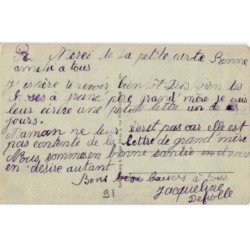 Merci de ta petite carte Bonne
amitié à tous
J'espère te revoir bien tôt Dis bien les
choses à grand père grand mère je vous
leur écrire une petite lettre un de
jours.
Maman ne leur écrit pas car elle est
pas contente de la lettre de grand mère
Nous sommes en bonne santée et nous
en désire autant
Bons baisers à tous
Jacqueline